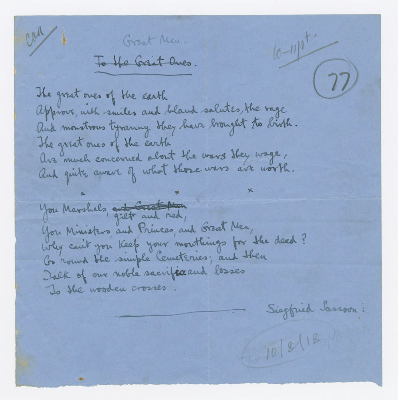 Can
Great Men.
To the Great Ones.
10-11pt
77
The great ones of the earth
Approve, with smiles and bland salutes, the rage
And monstrous tyranny they have brought to birth.
The great ones of the earth
Are much concerned about the wars they wage,
And quite aware of what those wars are worth.
x x x
You Marshals, and Great Men
gilt and red,
You Ministers and Princes, and Great Men,
Why can't you keep your mouthings for the dead?
Go round the simple Cemeteries; and then
Talk of our noble sacrifice and losses
To the wooden crosses.
Siegfried Sassoon:
10/8/18